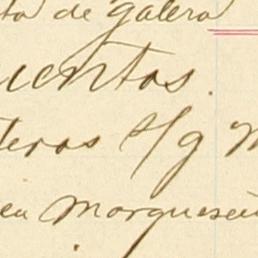 ta de galera
uentos.
teros s/g M
en Marquesein